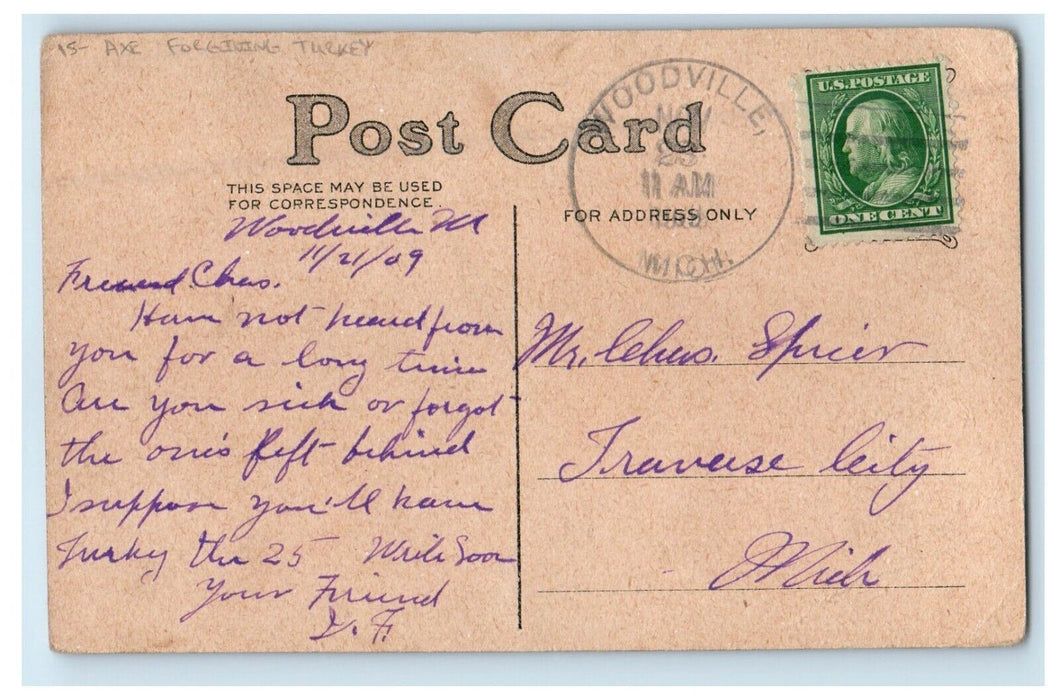 15- AXE FORGIVING TURKEY
Post Card
THIS SPACE MAY BE USED
FOR CORRESPONDENCE.
FOR ADDRESS ONLY
WOODVILLE,
NOV
23
11 AM
MICH.
U.S. POSTAGE
ONE CENT
Woodville M
11/21/09
Friend Chas.
Have not heard from
you for a long time
Are you sick or forgot
the one's left behind
I suppose you'll have
Turky the 25 Write Soon
Your Friend
Mr. Chas. Spicer
Traverse City
Mich